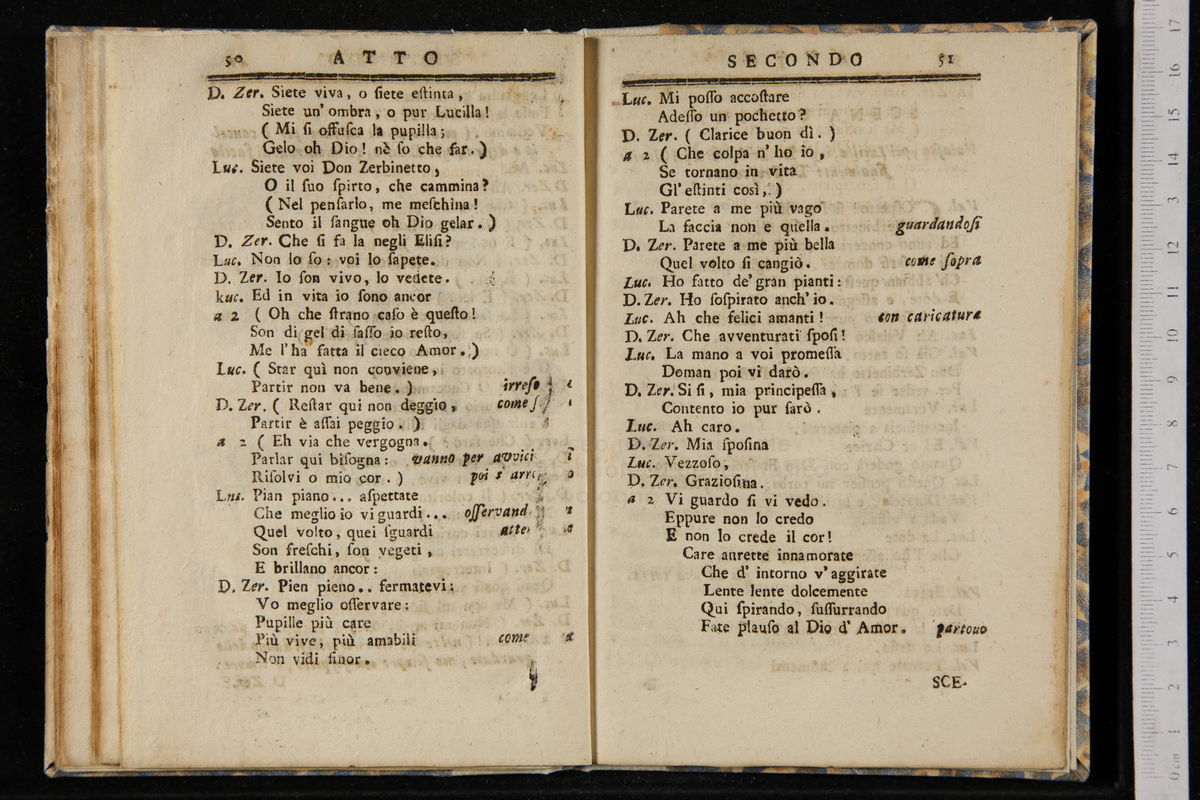 50 ATTO
D. Zer. Siete viva, o ſiete eſtinta,
Siete un' ombra, o pur Lucilla!
( Mi ſi offuſca la pupilla;
Gelo oh Dio! nè ſo che far. )
Luc. Siete voi Don Zerbinetto,
O il ſuo ſpirto, che cammina?
( Nel penſarlo, me meſchina!
Sento il ſangue oh Dio gelar. )
D. Zer. Che ſi fa la negli Eliſi?
Luc. Non lo ſo: voi lo ſapete.
D. Zer. Io ſon vivo, lo vedete.
Luc. Ed in vita io ſono ancor
a 2 ( Oh che ſtrano caſo è queſto!
Son di gel di ſaſſo io reſto,
Me l'ha fatta il cieco Amor. )
Luc. ( Star quì non conviene,
Partir non va bene. ) irreſo
D. Zer. ( Reſtar qui non deggio, come ſ
Partir è aſſai peggio. )
a 2 ( Eh via che vergogna.
Parlar qui biſogna: vanno per avvici
Riſolvi o mio cor. ) poi s' arre
Luc. Pian piano... aſpettate
Che meglio io vi guardi... oſſervand
Quel volto, quei ſguardi atte
Son freſchi, ſon vegeti,
E brillano ancor:
D. Zer. Pien pieno.. fermatevi:
Vo meglio oſſervare:
Pupille più care
Più vive, più amabili come
Non vidi finor.
SECONDO 51
Luc. Mi poſſo accoſtare
Adeſſo un pochetto?
D. Zer. ( Clarice buon dì. )
a 2 ( Che colpa n' ho io,
Se tornano in vita
Gl' eſtinti così,. )
Luc. Parete a me più vago
La faccia non e quella. guardandoſi
D. Zer. Parete a me più bella
Quel volto ſi cangiò. come ſopra
Luc. Ho fatto de' gran pianti:
D. Zer. Ho ſoſpirato anch' io.
Luc. Ah che felici amanti! con caricatura
D. Zer. Che avventurati ſpoſi!
Luc. La mano a voi promeſſa
Doman poi vi darò.
D. Zer. Si ſi, mia principeſſa,
Contento io pur ſarò.
Luc. Ah caro.
D. Zer. Mia ſpoſina
Luc. Vezzoſo,
D. Zer. Grazioſina.
a 2 Vi guardo ſi vi vedo.
Eppure non lo credo
E non lo crede il cor!
Care aurette innamorate
Che d' intorno v' aggirate
Lente lente dolcemente
Qui ſpirando, ſuſſurrando
Fate plauſo al Dio d' Amor. partono
SCE-